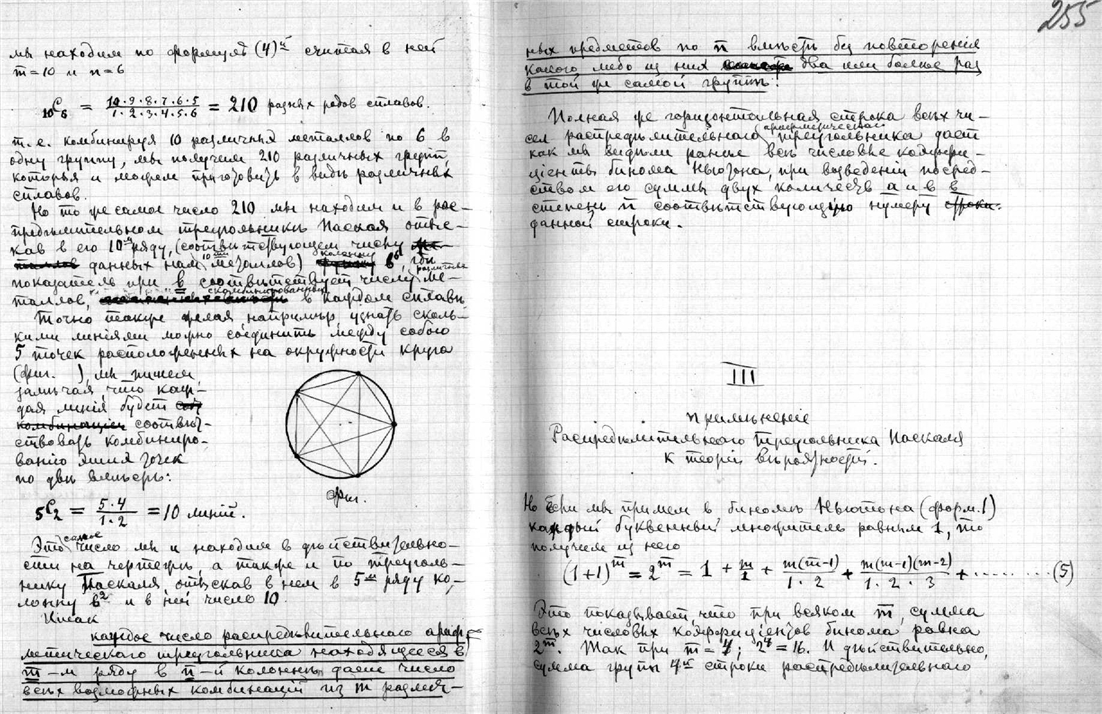 мы находим по формулѣ (4)й считая в ней
m=10 и n=6
10C6 = 10·9·8·7·6·5 / 1·2·3·4·5·6 = 210 разных родов сплавов.
т.е. комбинируя 10 различных металлов по 6 в
одну группу, мы получим 210 различных групп,
которыя и можем приготовить в видѣ различных
сплавов.
Но то же самое число 210 мы находим и в рас-
предѣлительном треугольникѣ Паскаля отыс-
кав в его 10м ряду, (соотвѣтствующем числу
данных нам 10 металлов) колонну в6, гдѣ
показатель при в соотвѣтствует числу ме-
таллов, скомбинированных в каждом сплавѣ
Точно также желая напримѣр узнать сколь-
кими линіями можно соединить между собою
5 точек расположенных на окружности круга
(фиг. ), мы пишем,
замѣчая, что каж-
дая линія будет
соотвѣт-
ствовать комбиниро-
ванію этих точек
по двѣ вмѣстѣ:
фиг.
5C2 = 5·4 / 1·2 = 10 линій.
Это самое число мы и находим в дѣйствительно-
сти на чертежѣ, а также и по треуголь-
нику Паскаля, отыскав в нем в 5м ряду ко-
лонну в2 и в ней число 10.
Итак
каждое число распредѣлительнаго ариф-
метическаго треугольника находящееся в
m-м ряду в n-й колоннѣ, дает число
всѣх возможных комбинацій из m различ-
255
ных предметов по n вмѣстѣ без повторенія
какого либо из них два или болѣе раз
в той же самой группѣ!
Полная же горизонтальная строка всѣх чи-
сел распредѣлительнаго арифметическаго треугольника дает
как мы видѣли ранѣе всѣ числовые коэффи-
ціенты бинома Ньютона, при возведеніи посред-
ством его суммы двух количеств а и в в
степень n соотвѣтствующую нумеру
данной строки.
III
Примѣненіе
Распредѣлительнаго треугольника Паскаля
к теоріи вѣроятностей.
Но если мы примем в биномѣ Ньютона (форм. 1)
каждый буквенный множитель равным 1, то
получим из него
(1+1)^m = 2^m = 1 + m/1 + m(m-1)/1·2 + m(m-1)(m-2)/1·2·3 + ......... (5)
Это показывает, что при всяком m, сумма
всѣх числовых коэффиціентов бинома равна
2^m. Так при m=4; 2^4=16. И дѣйствительно,
сумма групп 4й строки распредѣлительнаго